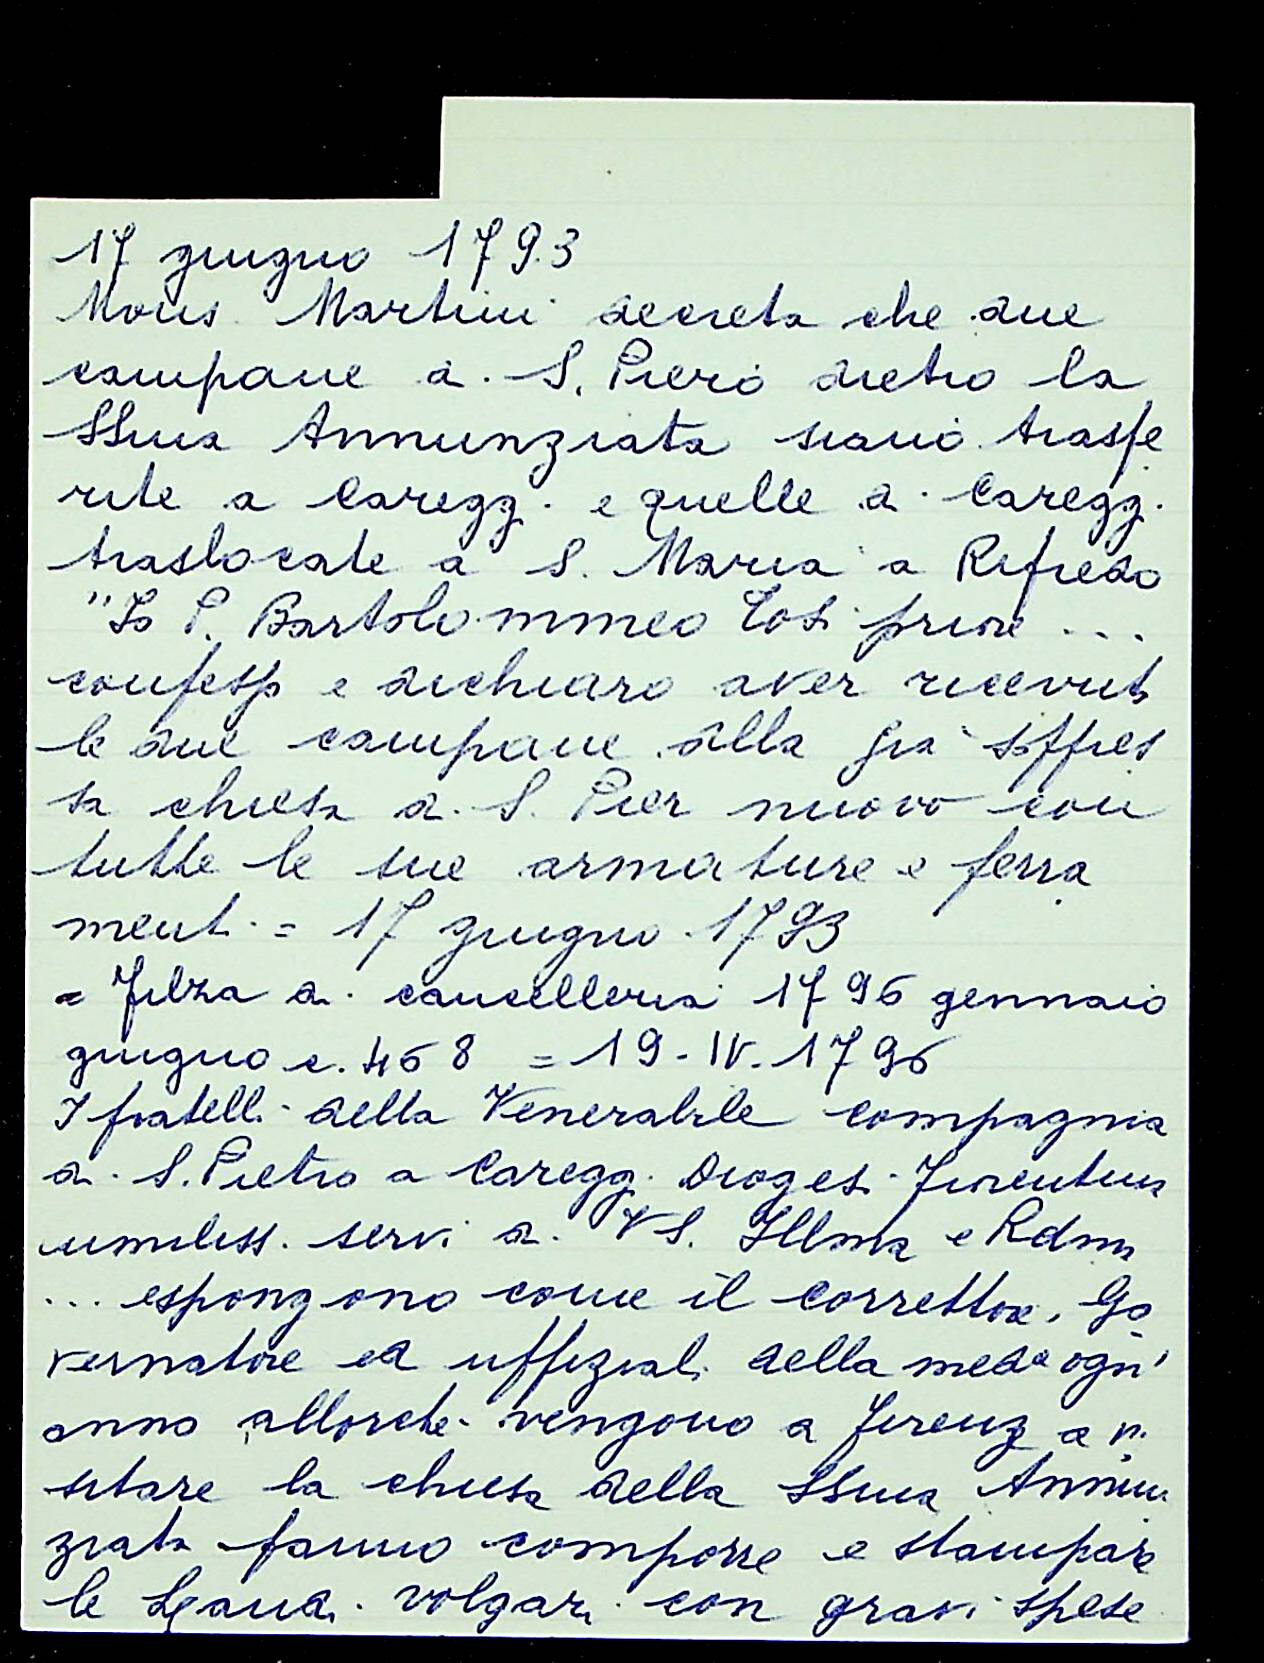 17 giugno 1793
Mons. Martini decreta che due
campane di S. Piero dietro la
SSma Annunziata siano trasfe
rite a Careggi e quelle di Careggi
traslocate a S. Maria a Rifredo
"Io P. Bartolommeo Tosi priore ...
confesso e dichiaro aver ricevuto
le due campane della già soppres
sa chiesa di S. Pier nuovo con
tutte le sue armature e ferra
menti = 17 giugno 1793
= Filza di cancelleria 1796 gennaio
giugno c. 468 = 19-IV-1796
I fratelli della Venerabile compagnia
di S. Pietro a Careggi Diogesi Fiorentina
umiliss. servi di VS. Illma e Rdma
... espongono come il correttore, Go
vernatore ed uffiziali della meda ogni
anno allorchè vengono a Firenze a vi
sitare la chiesa della SSma Annun
ziata fanno comporre e stampare
le Laudi volgari con gravi spese